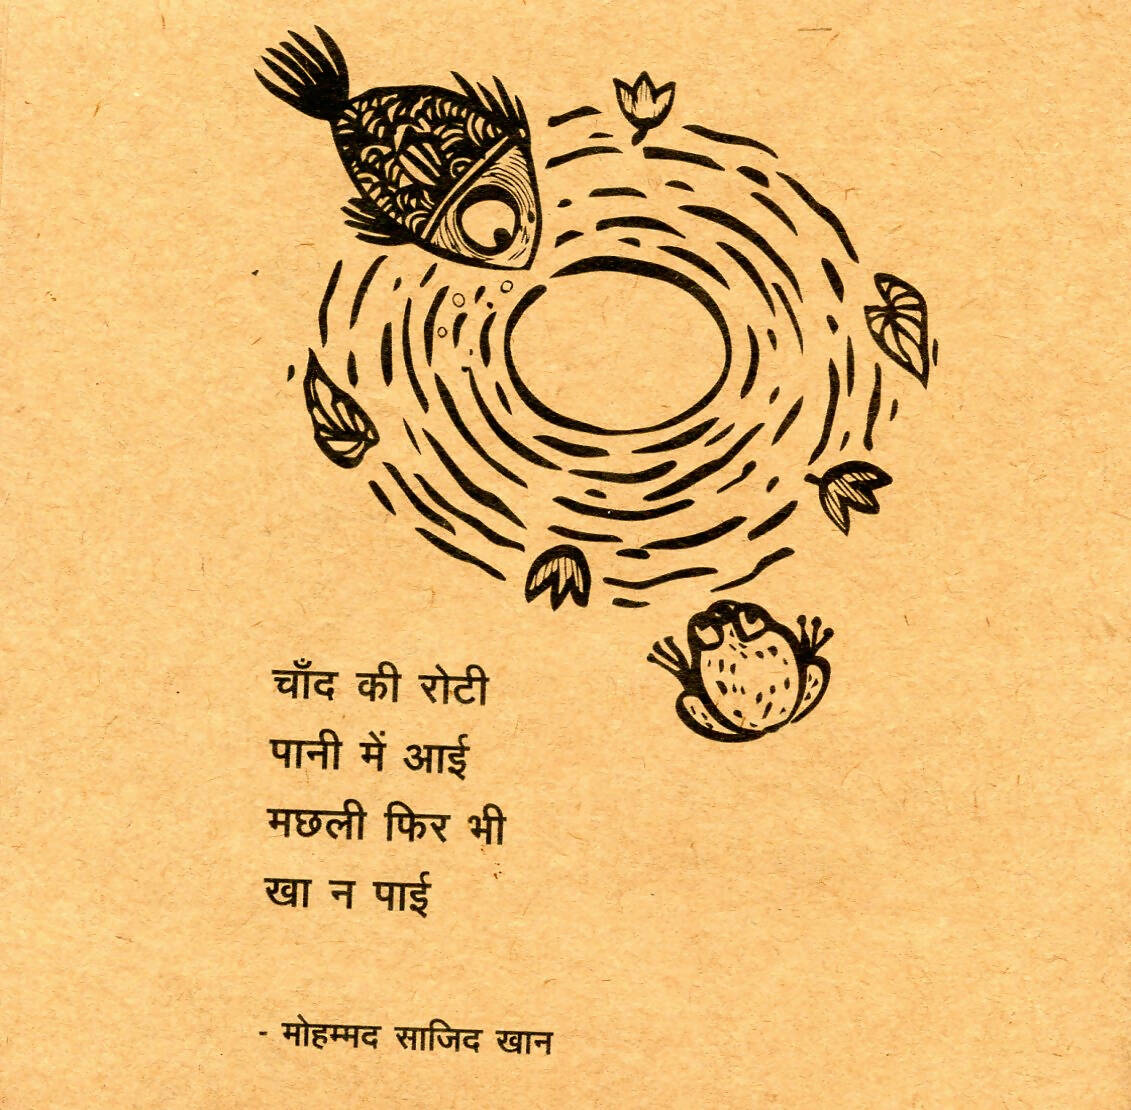 चाँद की रोटी
पानी में आई
मछली फिर भी
खा न पाई
- मोहम्मद साजिद खान